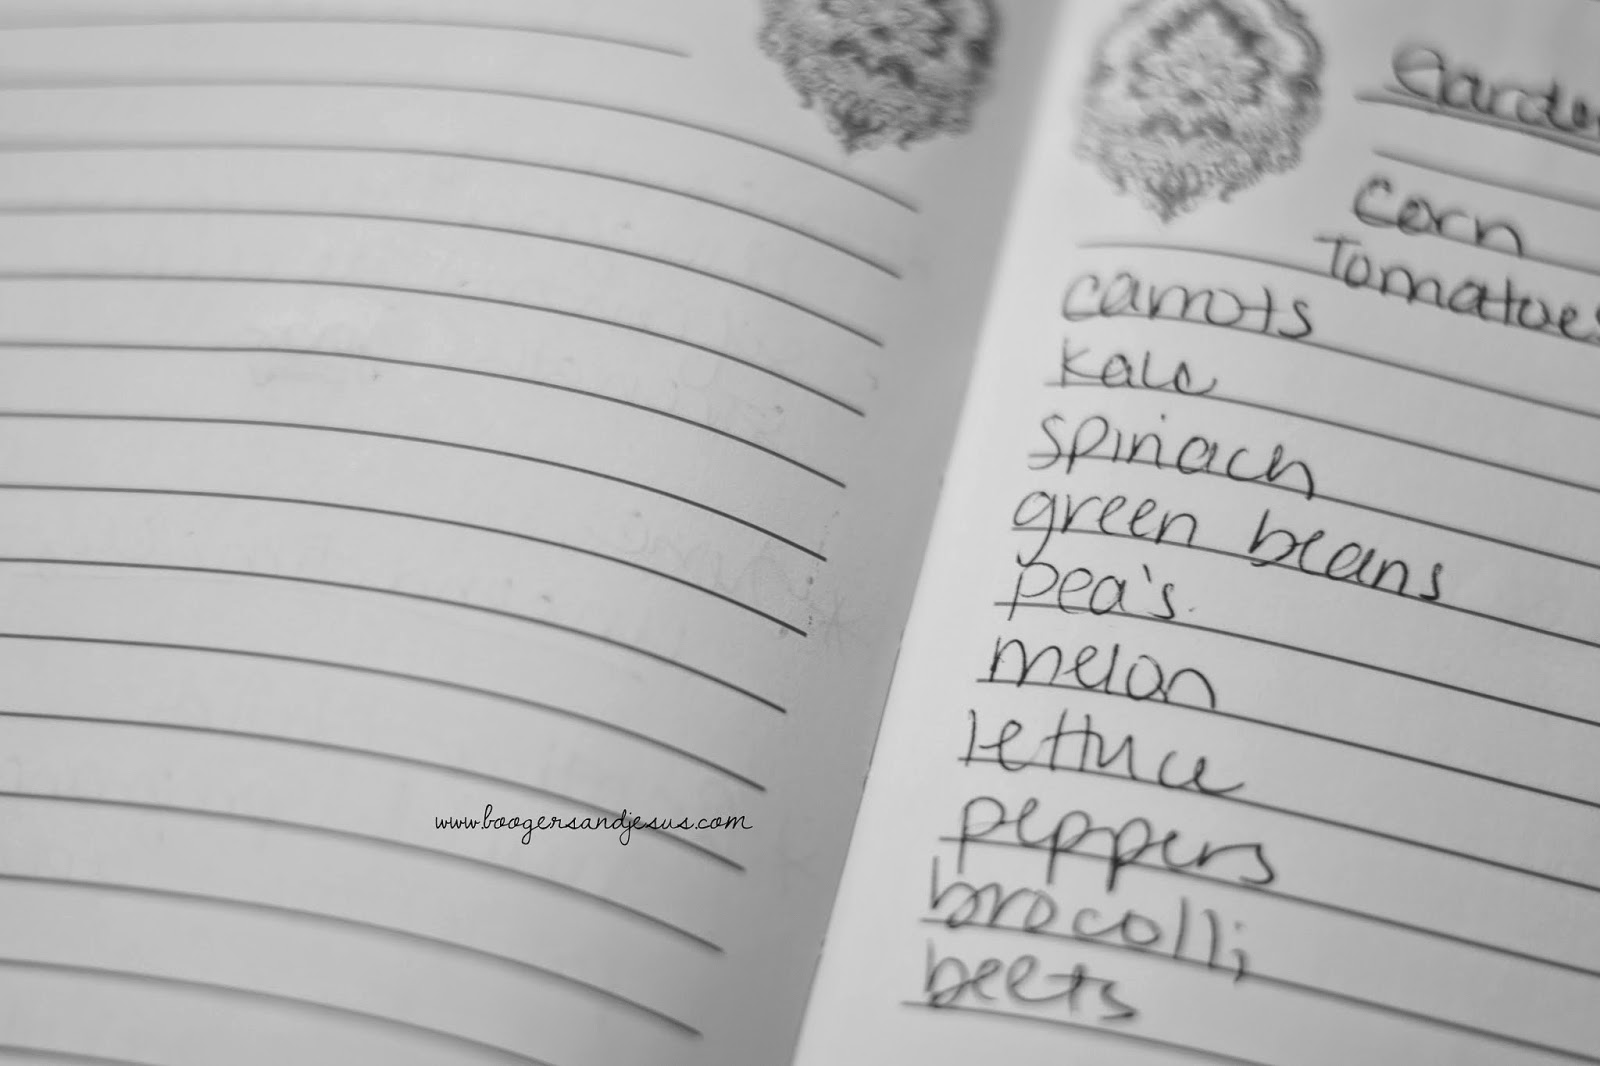 Garden
Corn
Tomatoes
carrots
kale
spinach
green beans
pea's
melon
lettuce
peppers
brocolli
beets
www.boogersandjesus.com